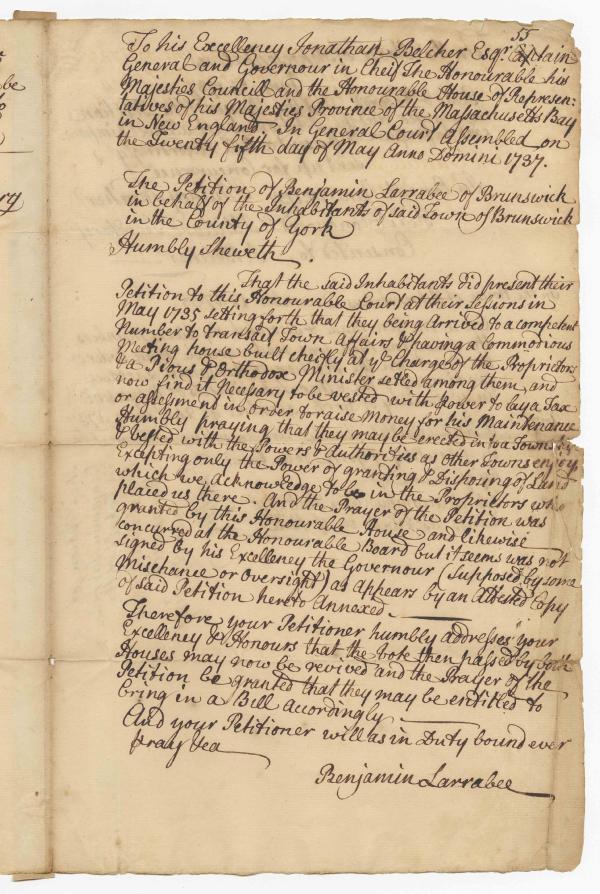 55
To his Excellency Jonathan Belcher Esqr. Captain
General and Governour in Cheif The Honourable his
Majesties Councill and the Honourable House of Represen=
tatives of his Majesties Province of the Massachusetts Bay
in New England. In General Court Assembled on
the Twenty fifth day of May Anno Domini 1737.
The Petition of Benjamin Larrabee of Brunswick
in behalf of the Inhabitants of said Town of Brunswick
in the County of York
Humbly Sheweth.
That the said Inhabitants did present their
Petition to this Honourable Court at their Sessions in
May 1735 setting forth that they being arrived to a competent
Number to transact Town Affairs & having a Commodious
Meeting house built cheifly at ye Charge of the Proprietors
& a Pious & Orthodox Minister setled among them, and
now find it necessary to be vested with power to lay a Tax
or assessment in order to raise Money for his Maintenance
Humbly praying that they may be erected into a Township
& vested with the Powers & Authorities as other Towns enjoy
Excepting only the Power of granting & Disposing of Land
which we Acknowledge to be in the Proprietors who
placed us there. And the Prayer of the Petition was
granted by this Honourable House and likewise
concurred at the Honourable Board but it seems was not
signed by his Excellency the Governour (Supposed by some
Mischance or Oversight) as appears by an Attested Copy
of said Petition hereto Annexed.
Therefore your Petitioner humbly addresses your
Excellency & Honours that the vote then passed by both
Houses may now be revived and the Prayer of the
Petition be granted that they may be entitled to
bring in a Bill accordingly
And your Petitioner will as in Duty bound ever
pray &ca
Benjamin Larrabee
be
ry